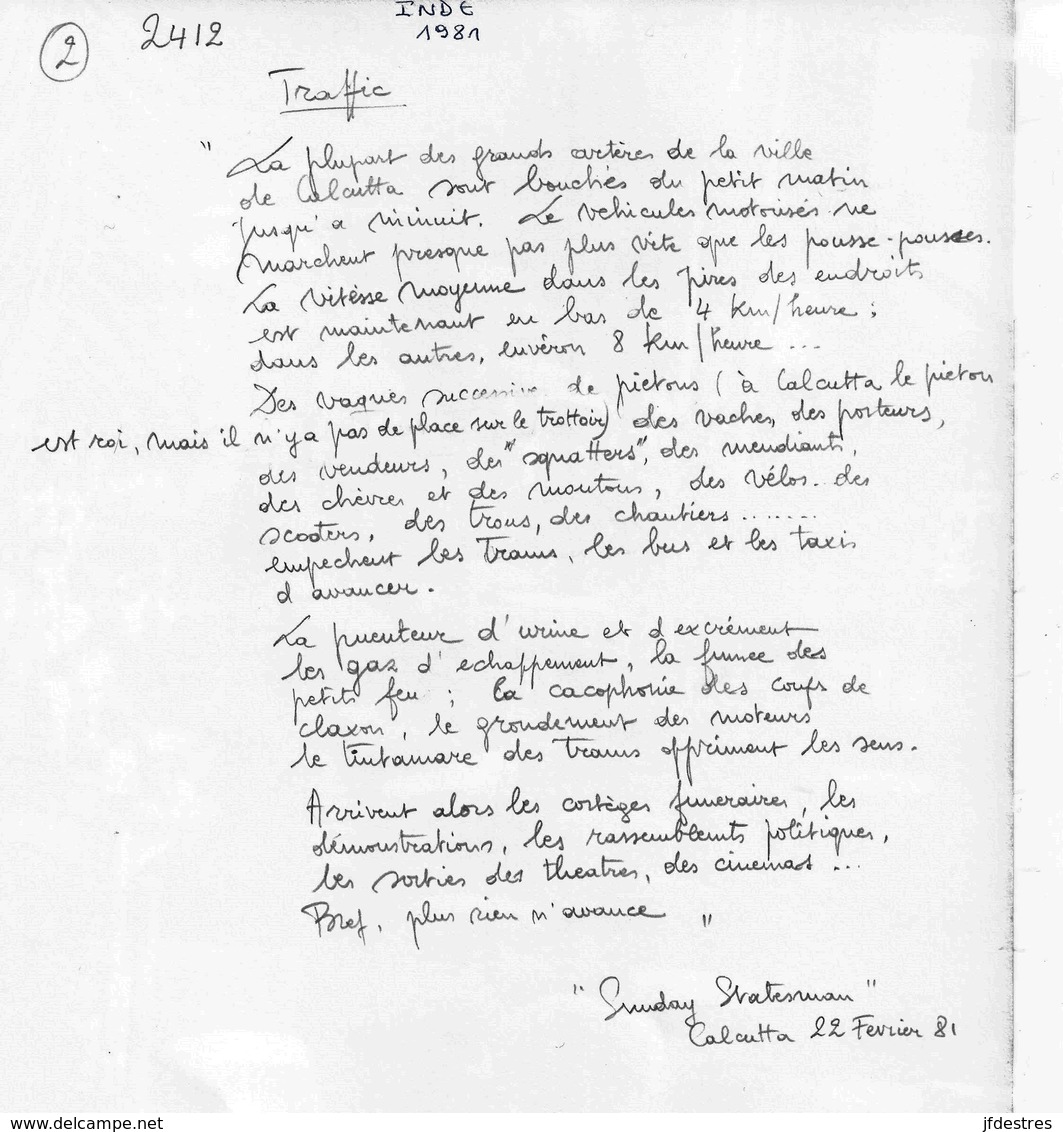 INDE
1981
2
2412
Traffic
" La plupart des grands artères de la ville
de Calcutta sont bouchés du petit matin
jusqu'a minuit. Le vehicules motorisés ne
marchent presque pas plus vite que les pousse-pousses.
La vitèsse moyenne dans les pires des endroits
est maintenant en bas de 4 km/heure ;
dans les autres, envéron 8 km/heure ...
Des vagues successive de pietons ( à Calcutta le pieton
est roi, mais il n'y a pas de place sur le trottoir) des vaches, des porteurs,
des vendeurs, des "squatters", des mendiants,
des chèvres et des moutons, des vélos. des
scooters, des trous, des chantiers ........
empechent les Trams, les bus et les taxis
d avancer.
La puenteur d'urine et d excrément
les gaz d'echappement, la fumee des
petits feu ; la cacophonie des coups de
claxon, le grondement des moteurs
le tintamare des trams oppriment les sens.
Arrivent alors les cortèges funeraires, les
démonstrations, les rassemblemts politiques,
les sorties des theatres, des cinemas ...
Bref, plus rien n'avance "
" Sunday Statesman "
Calcutta 22 Fevrier 81
www.delcampe.net
jfdestres